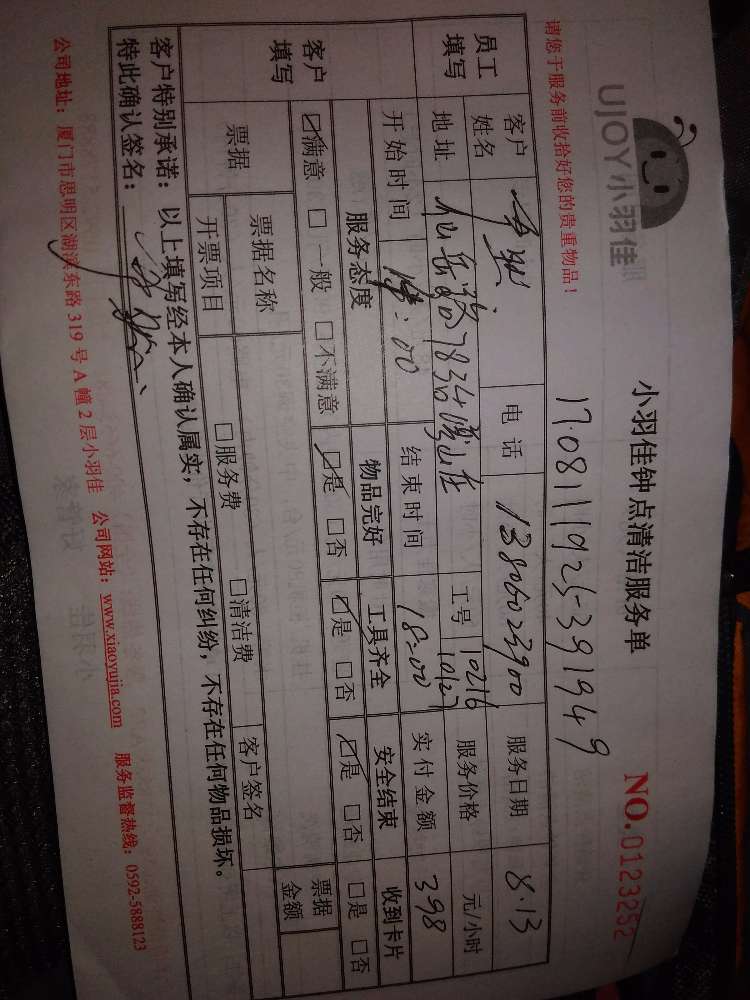 UJOY小羽佳
小羽佳钟点清洁服务单
NO.0123252
请您于服务前收拾好您的贵重物品!
1708111925-391949
员工填写
客户姓名
电话 13806023900
服务日期 8.13
地址 仙岳路783号
工号 10216 10127
服务价格 元/小时
开始时间 :00
结束时间 18:00
实付金额 398
客户填写
服务态度 物品完好 工具齐全 安全结束 收到卡片
☑满意 □一般 □不满意 ☑是 □否 ☑是 □否 ☑是 □否 □是 □否
票据
票据名称
票据金额
开票项目 □服务费 □清洁费 客户签名
客户特别承诺:以上填写经本人确认属实,不存在任何纠纷,不存在任何物品损坏。
特此确认签名:
公司地址:厦门市思明区湖滨东路319号A幢2层小羽佳 公司网站:www.xiaoyujia.com 服务监督热线:0592-5888123